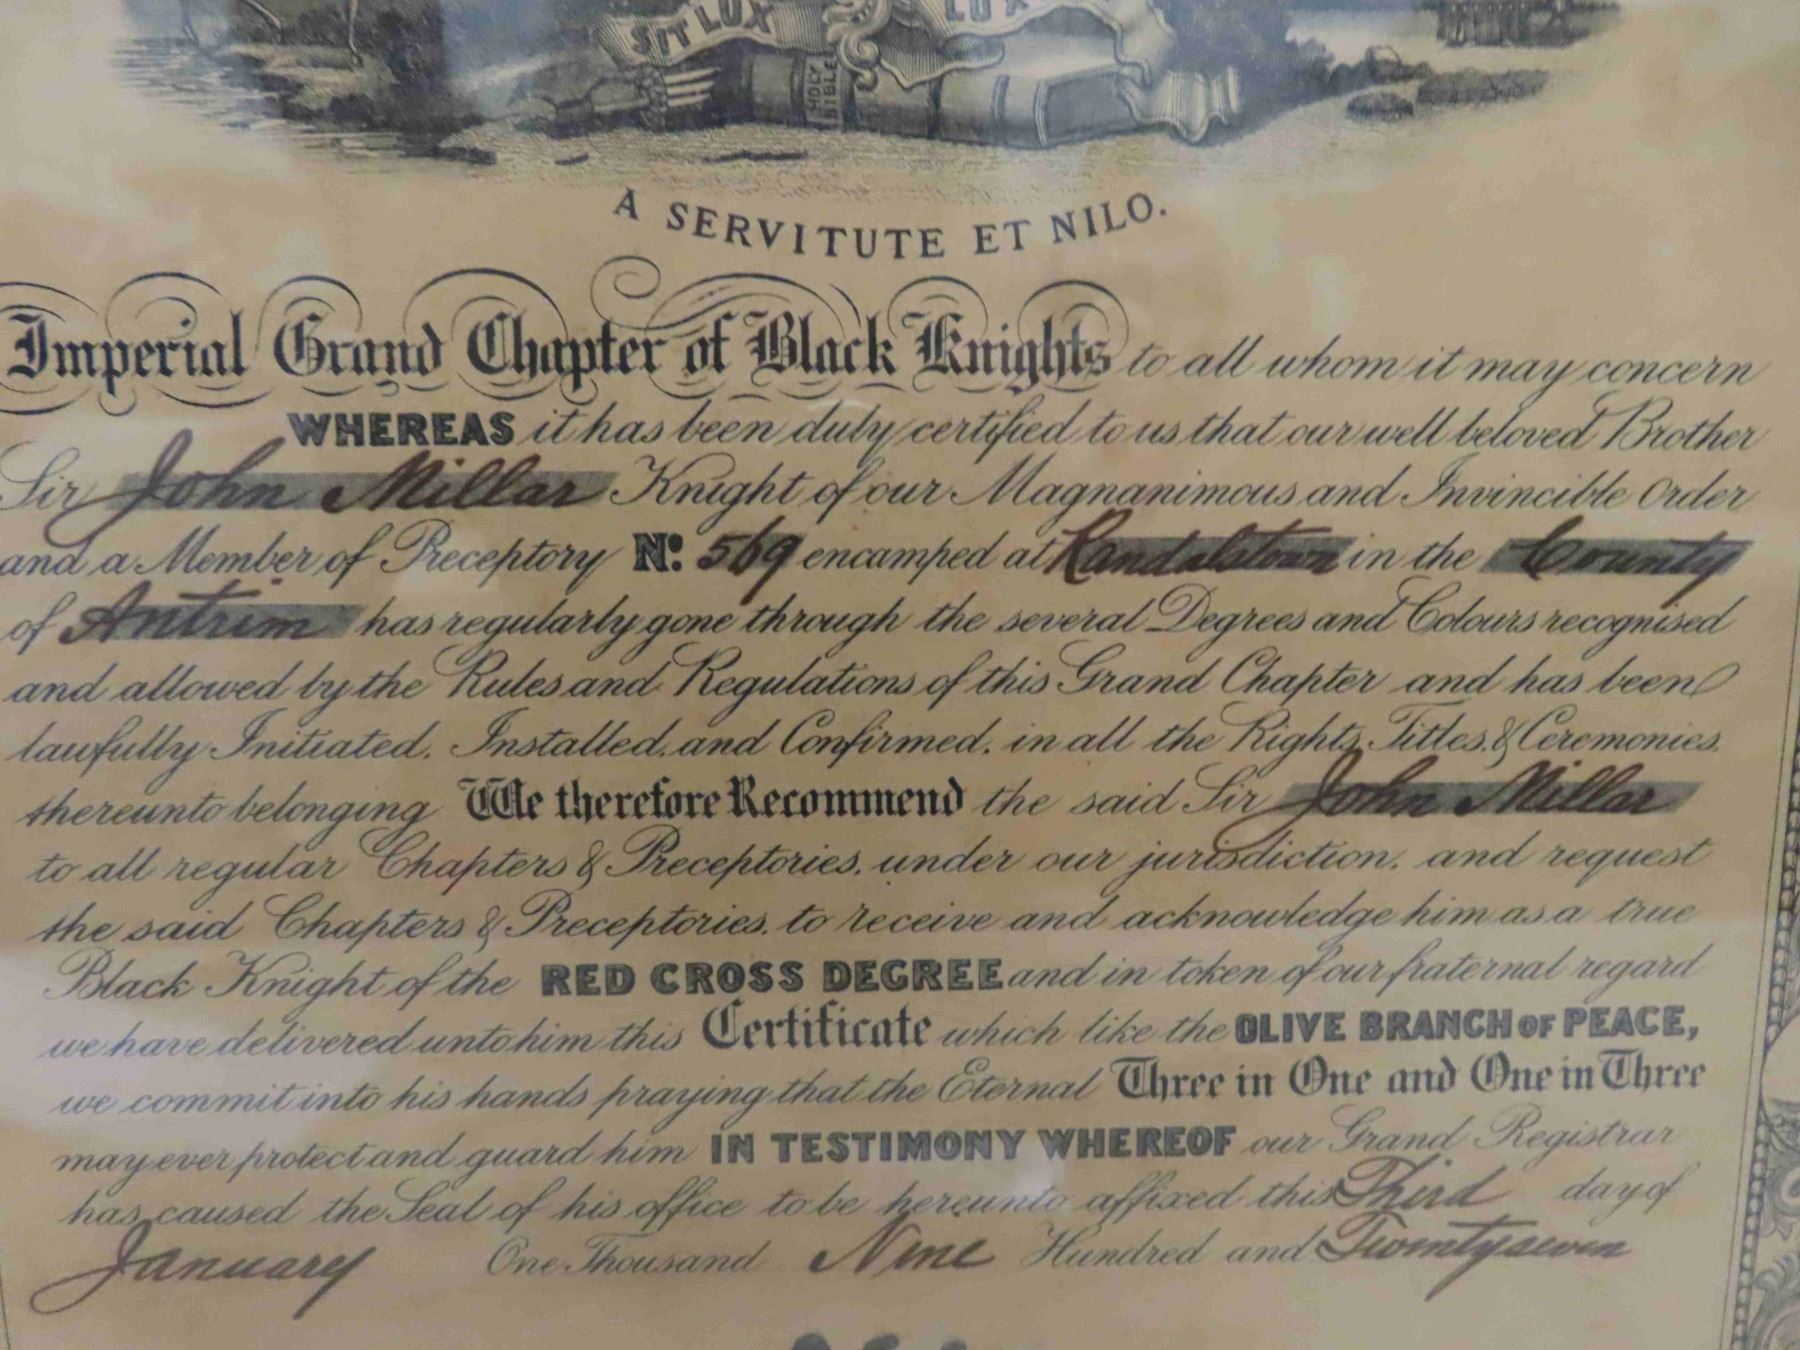 SIT LUX
LUX
HOLY
BIBLE
A SERVITUTE ET NILO.
Imperial Grand Chapter of Black Knights to all whom it may concern
WHEREAS it has been duly certified to us that our well beloved Brother
Sir John Millar Knight of our Magnanimous and Invincible Order
and a Member of Preceptory No. 569 encamped at Randalstown in the County
of Antrim has regularly gone through the several Degrees and Colours recognised
and allowed by the Rules and Regulations of this Grand Chapter and has been
lawfully Initiated. Installed. and Confirmed. in all the Rights, Titles, & Ceremonies.
thereunto belonging We therefore Recommend the said Sir John Millar
to all regular Chapters & Preceptories. under our jurisdiction. and request
the said Chapters & Preceptories. to receive and acknowledge him as a true
Black Knight of the RED CROSS DEGREE and in token of our fraternal regard
we have delivered unto him this Certificate which like the OLIVE BRANCH OF PEACE,
we commit into his hands praying that the Eternal Three in One and One in Three
may ever protect and guard him IN TESTIMONY WHEREOF our Grand Registrar
has caused the Seal of his office to be hereunto affixed this Third day of
January One Thousand Nine Hundred and Twentyseven